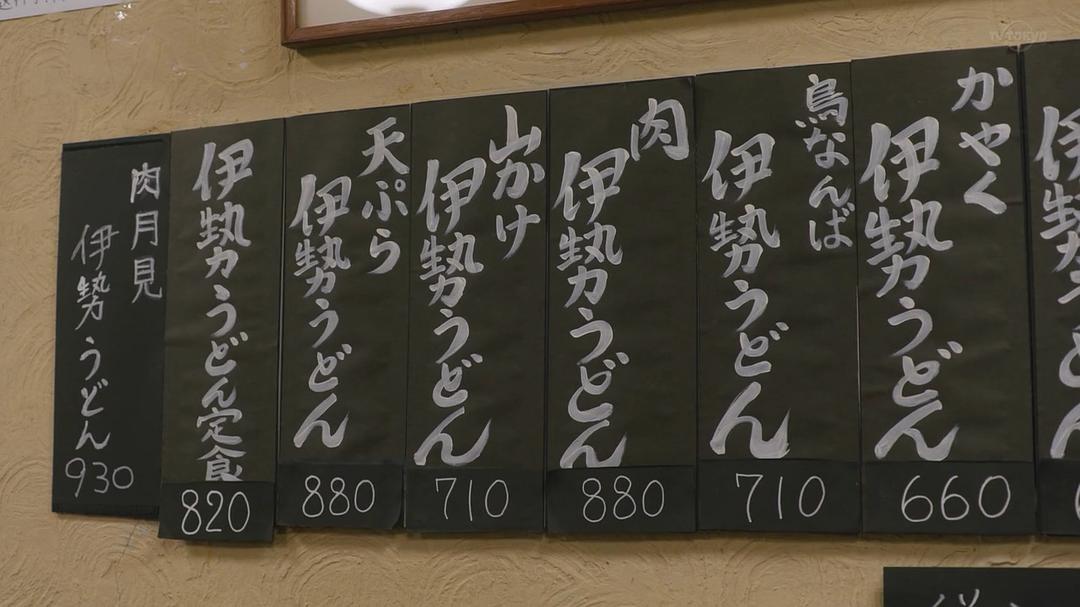 かやく
伊勢うどん
660
鳥なんば
伊勢うどん
710
肉
伊勢うどん
880
山かけ
伊勢うどん
710
天ぷら
伊勢うどん
880
伊勢うどん定食
820
肉月見
伊勢うどん
930
TV TOKYO